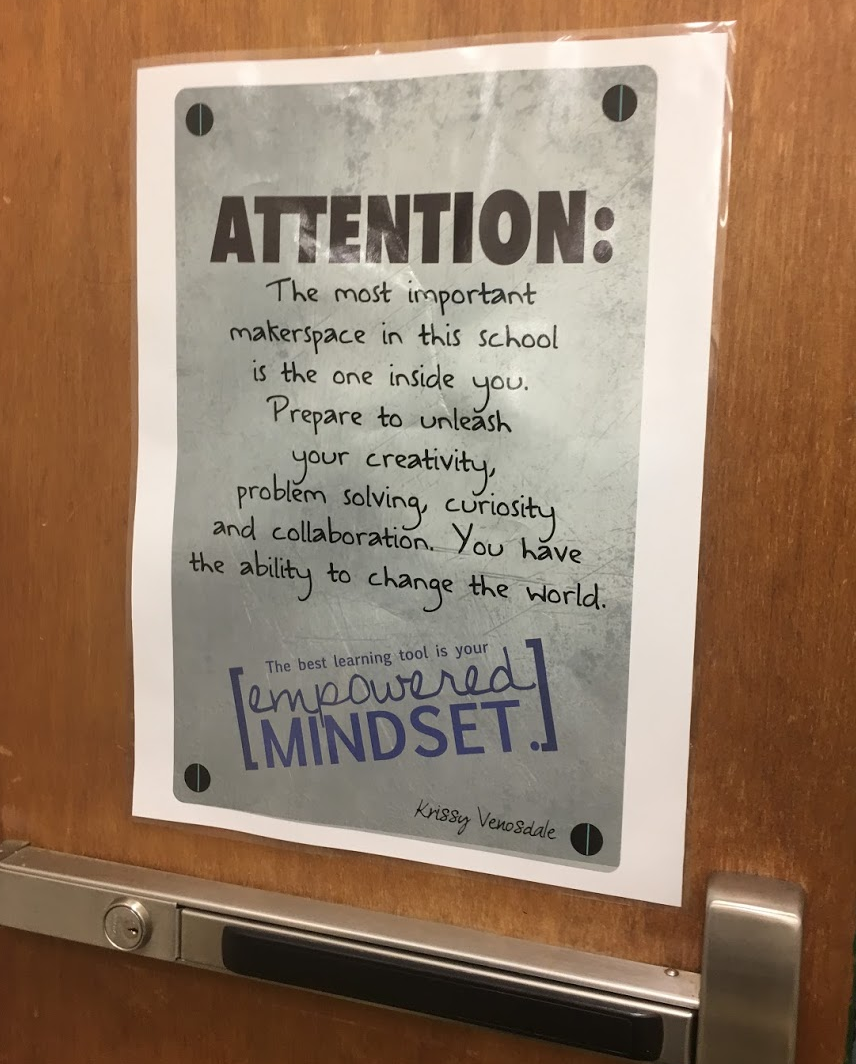 ATTENTION:
The most important
makerspace in this school
is the one inside you.
Prepare to unleash
your creativity,
problem solving, curiosity
and collaboration. You have
the ability to change the world.
The best learning tool is your
[empowered
MINDSET.]
Krissy Venosdale